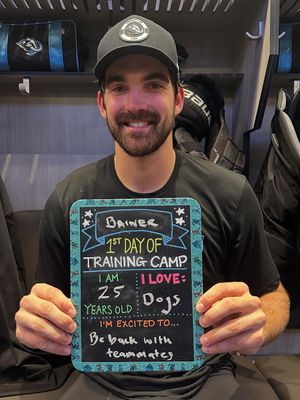 BAINER
1ST DAY OF
TRAINING CAMP
I AM
25
YEARS OLD
I LOVE:
Dogs
I'M EXCITED TO...
Be back with
teammates